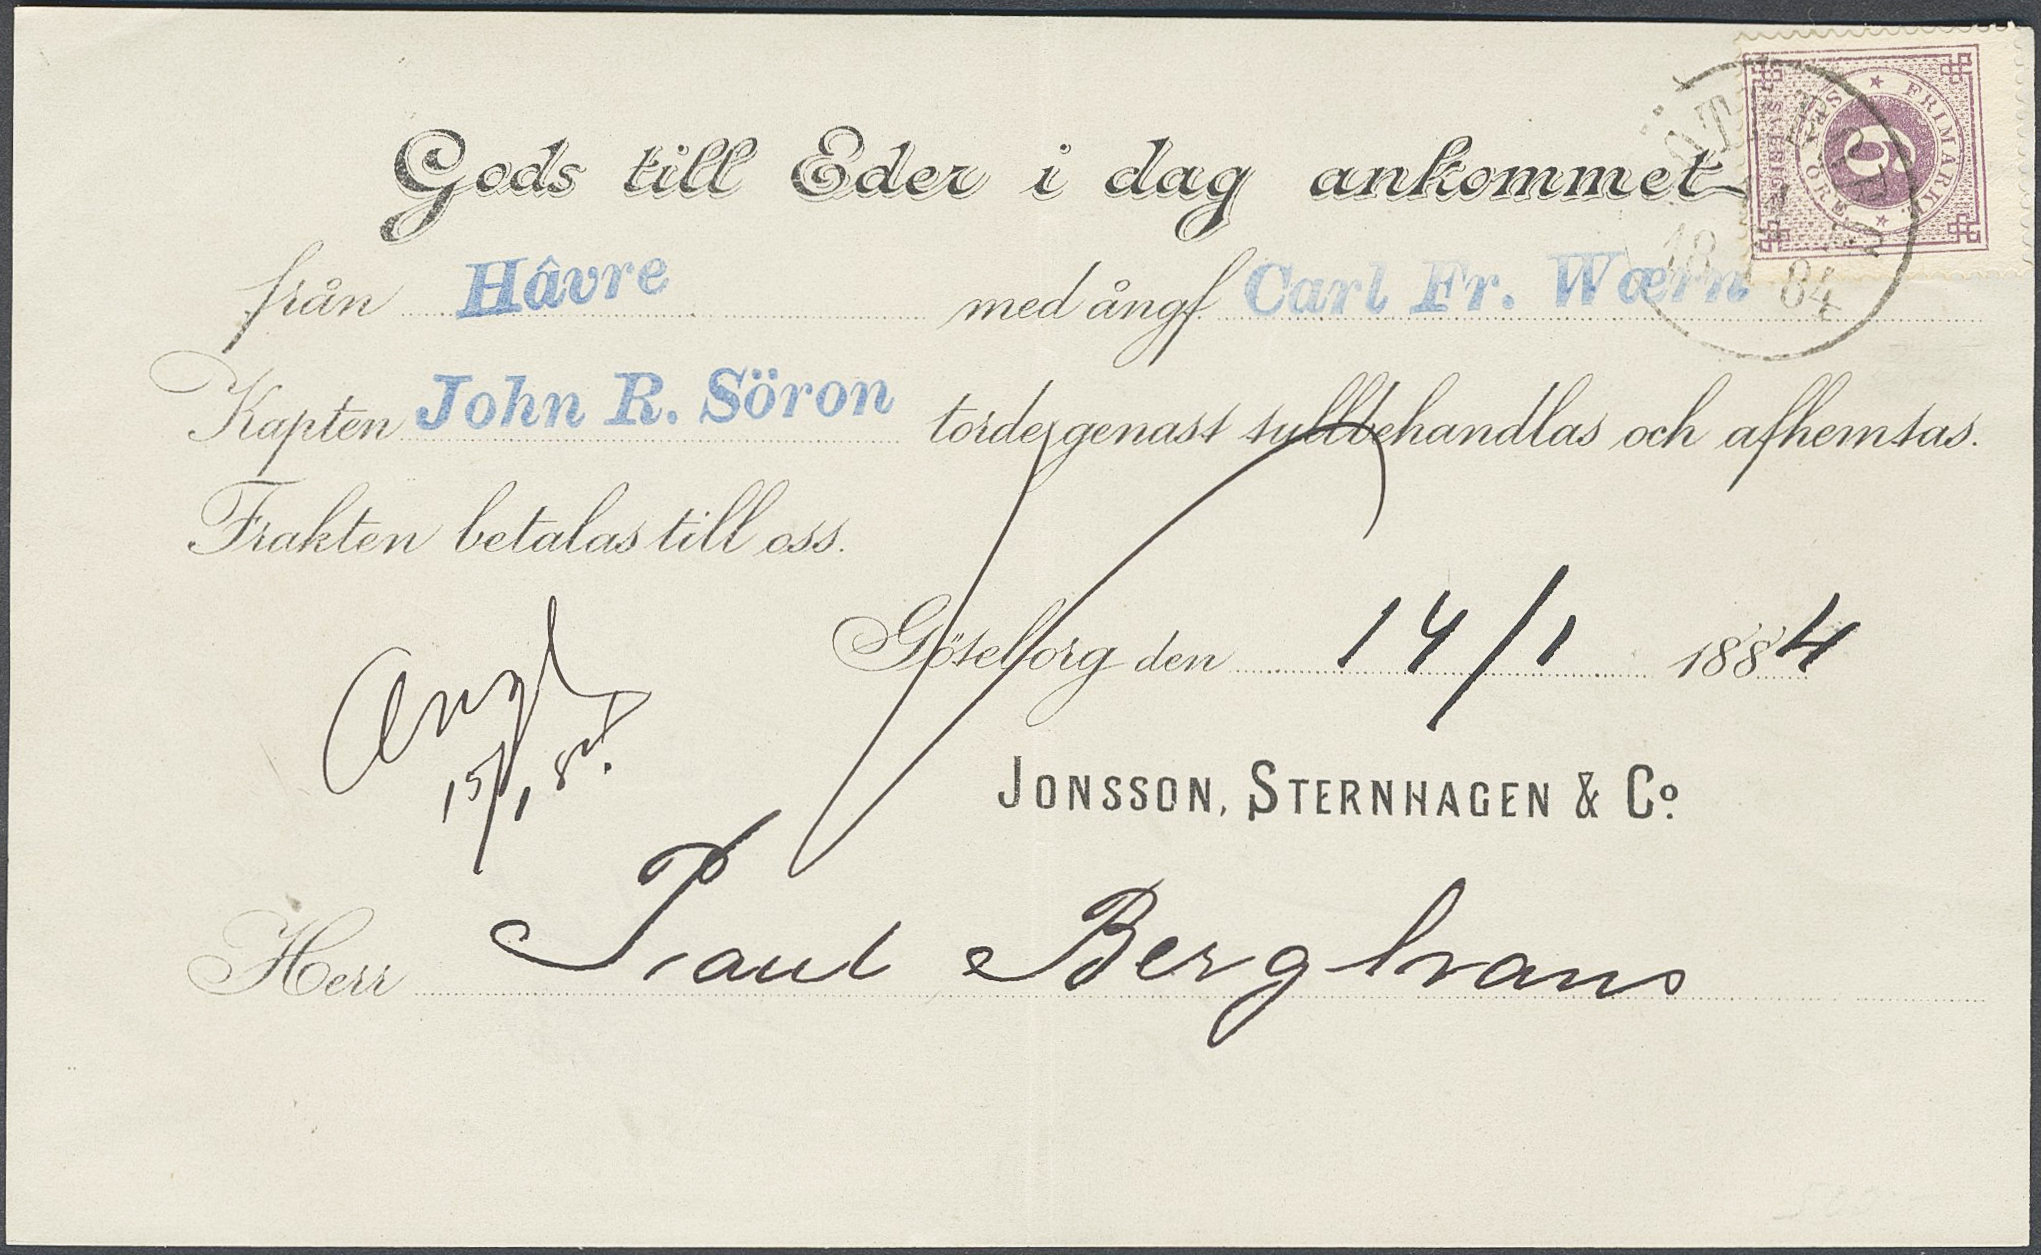 Gods till Eder i dag ankommet
från Hâvre med ångf Carl Fr. Wærn
Kapten John R. Söron torde genast tullbehandlas och afhemtas.
Frakten betalas till oss.
Göteborg den 14/1 1884
15/1 84.
JONSSON, STERNHAGEN & Co.
Herr Paul Berghaus
SVERIGE FRIMÄRKE 6 ÖRE
84